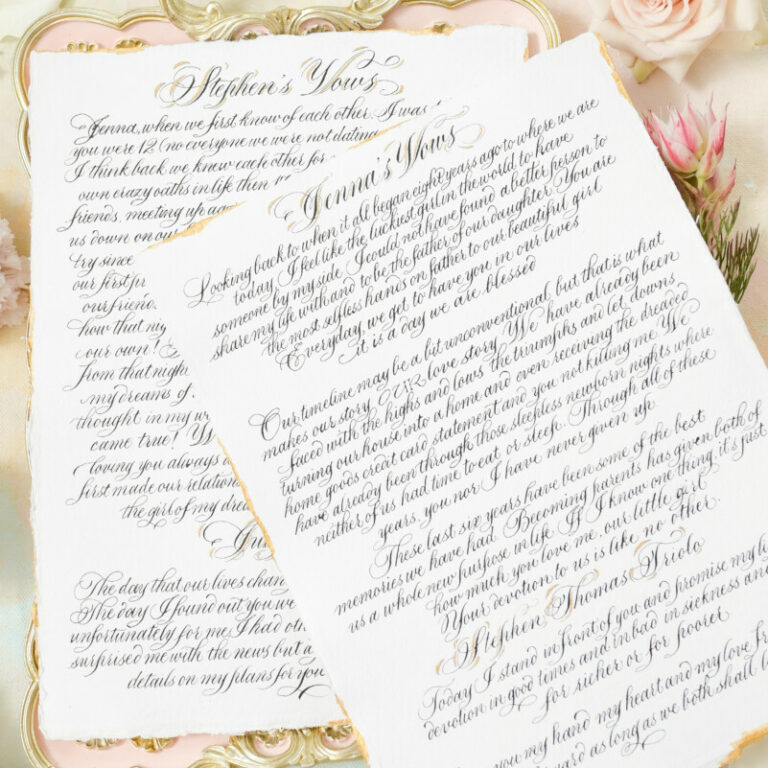 Stephen's Vows
Jenna, when we first know of each other. I was
you were 12 (no everyone we were not dating
I think back we knew each other for
own crazy oaths in life then
friends, meeting up aga
us down on our
try since
our first
our friend
how that nig
our own!
from that night
my dreams of
thought in my
came true!
loving you always
first made our relation
the girl of my drea
The day that our lives chan
The day I found out you we
unfortunately for me, I had oth
surprised me with the news but a
details on my plans for you
Jenna's Vows
Looking back to when it all began eight years ago to where we are
today I feel like the luckiest girl in the world to have
someone by my side I could not have found a better person to
share my life with and to be the father of our daughter. You are
the most selfless hands on father to our beautiful girl
Everyday we get to have you in our lives
it is a day we are blessed
Our timeline may be a bit unconventional, but that is what
makes our story OUR love story. We have already been
faced with the highs and lows the triumphs and let downs
turning our house into a home and even receiving the dreaded
home goods credit card statement and you not killing me We
have already been through those sleepless newborn nights where
neither of us had time to eat or sleep. Through all of these
years, you nor I have never given up.
These last six years have been some of the best
memories we have had. Becoming parents has given both of
us a whole new purpose in life. If I know one thing it's just
how much you love me, our little girl.
Your devotion to us is like no other.
Stephen Thomas Triolo
Today I stand in front of you and promise my li
devotion in good times and in bad in sickness and
for richer or for poorer
you my hand my heart and my love fr
ward as long as we both shall l